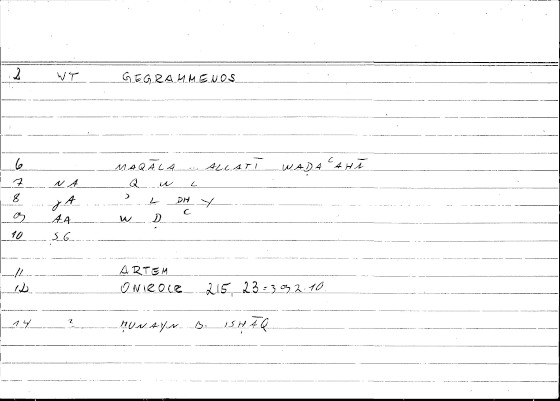 2 VT GEGRAMMENOS
6 MAQĀLA ALLATĪ WAḌAʿAHĀ
7 NA Q W L
8 ʾ L DH Y
9 AA W Ḍ ʿ
10 SG
11 ARTEM
12 ONIROCR 215, 23 = 392.10
14 ? ḤUNAYN B. ISḤĀQ